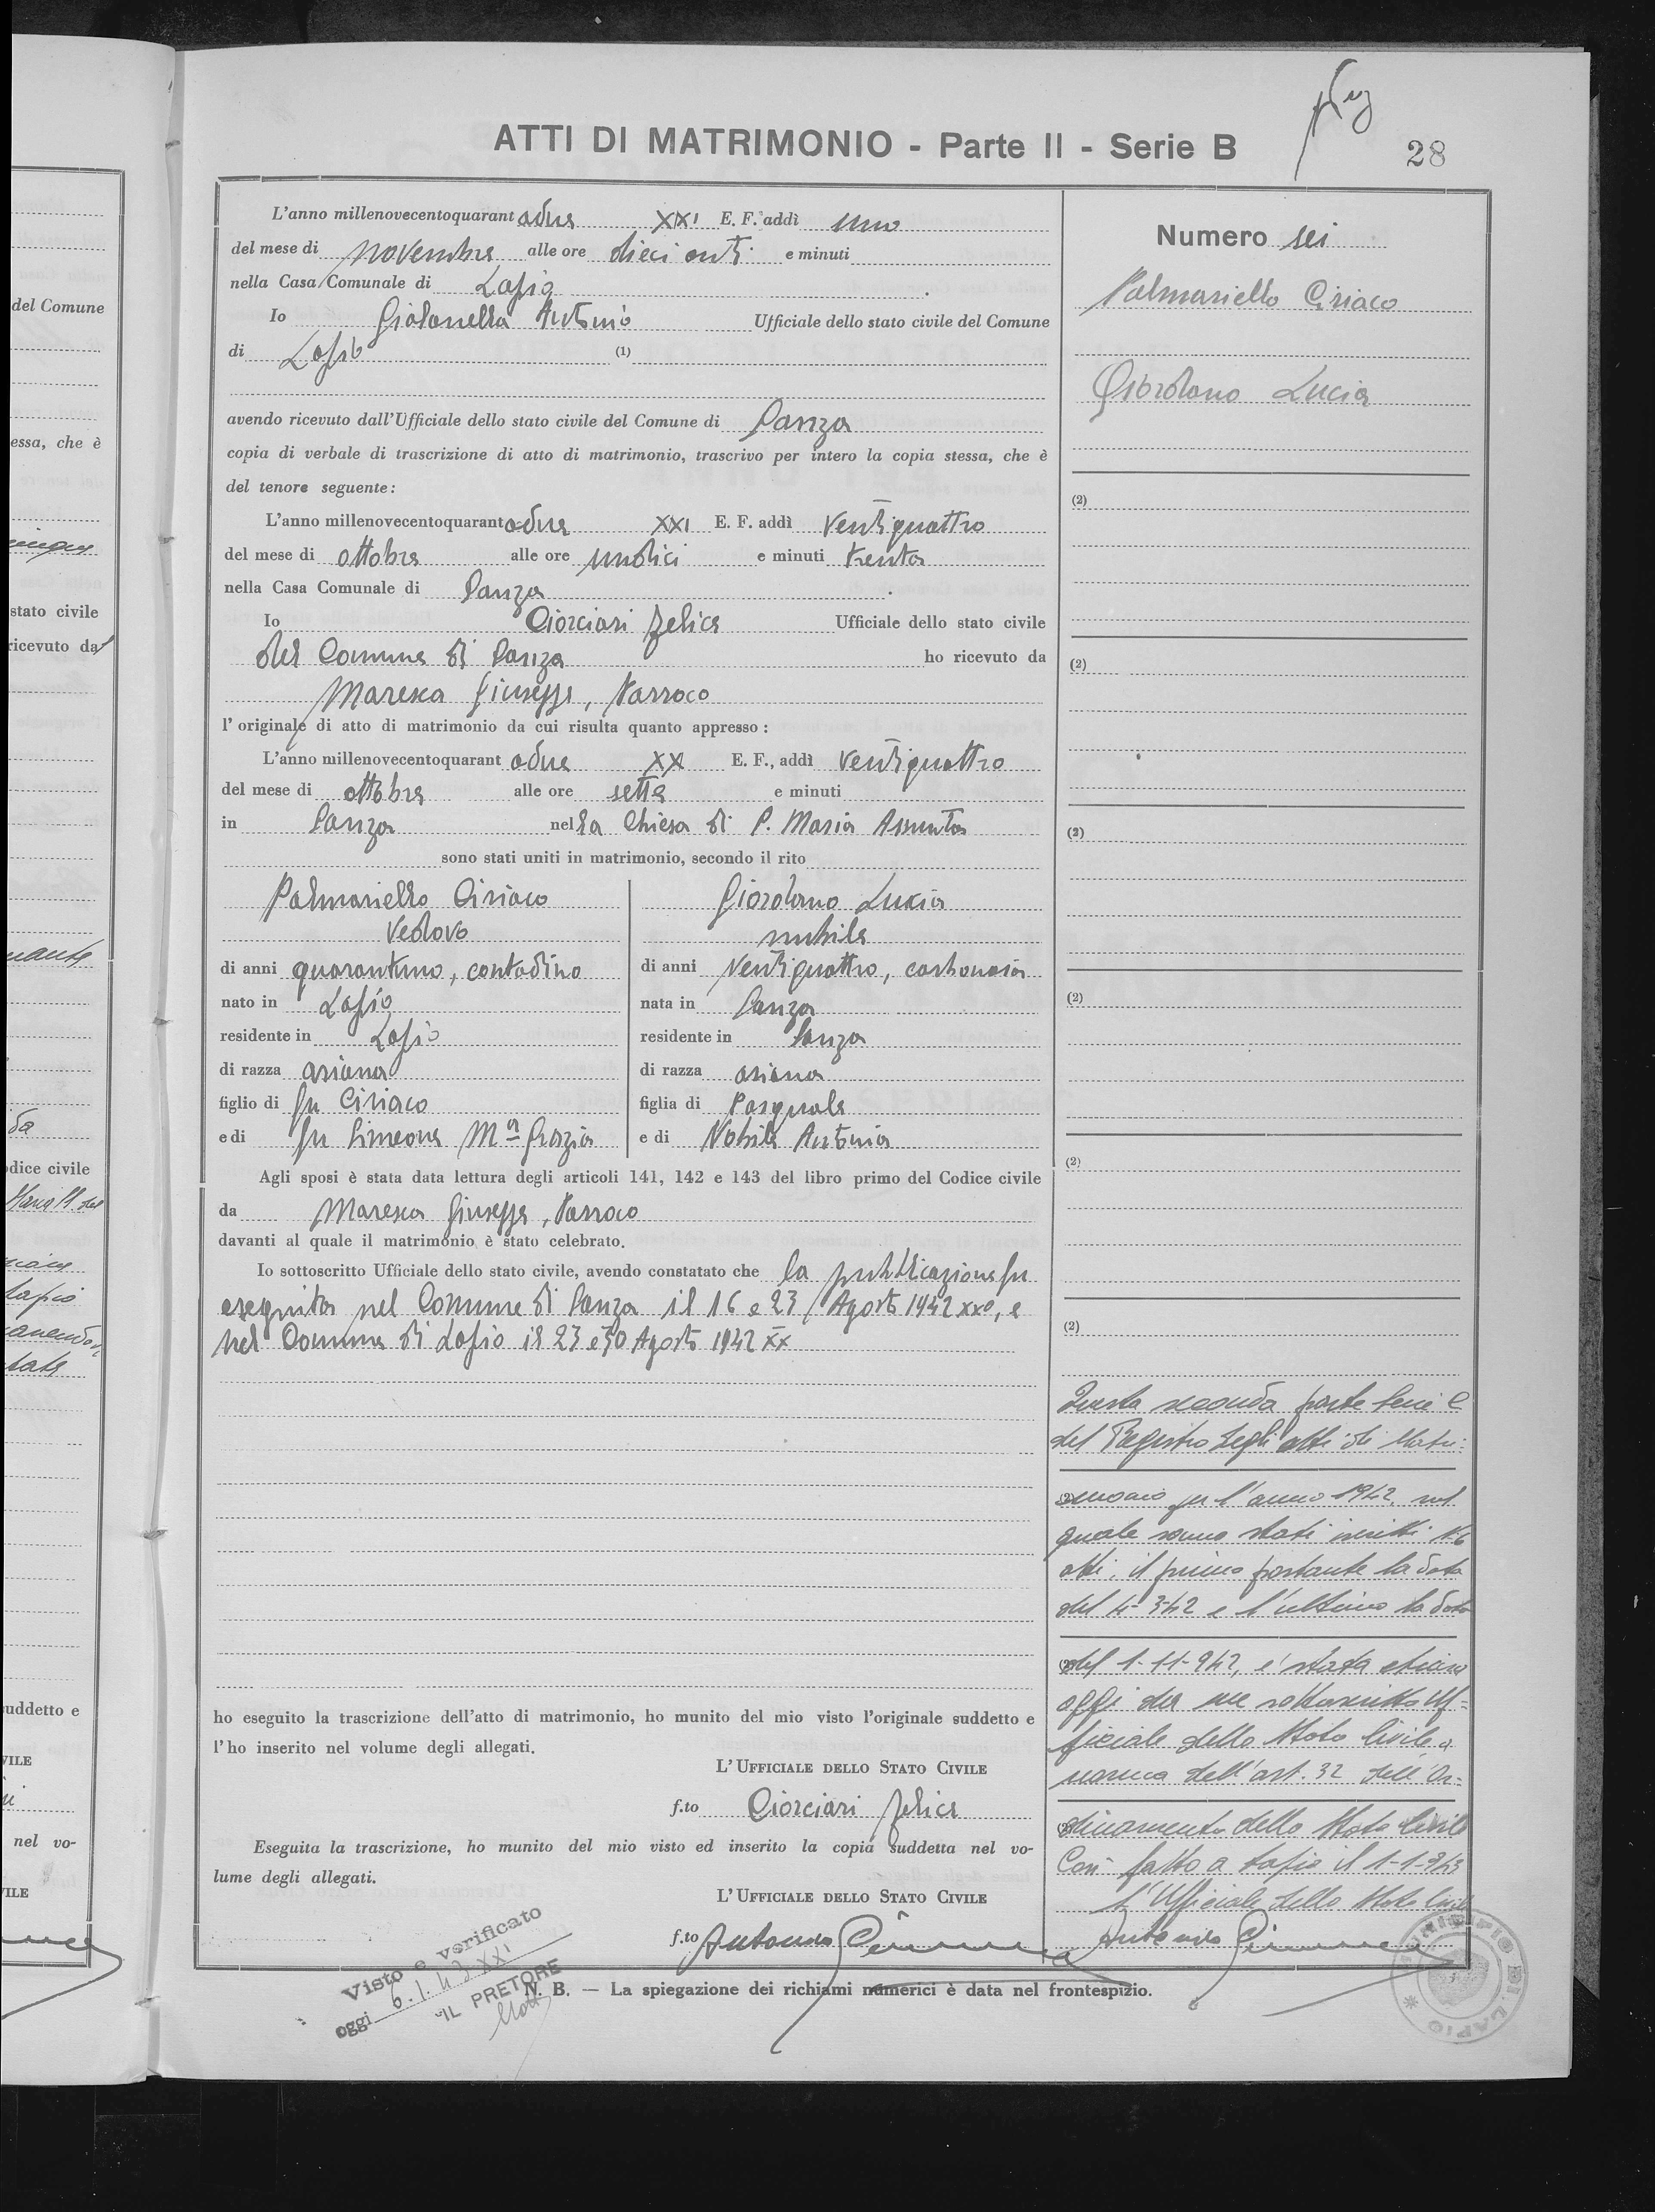 del Comune
essa, che è
stato civile
ricevuto da
da
dice civile
suddetto e
VILE
nel vo-
VILE
ATTI DI MATRIMONIO - Parte II - Serie B
28
L'anno millenovecentoquarant adue XXI E. F. addì uno
del mese di novembre alle ore dieci anti e minuti
nella Casa Comunale di Lapio
Io Antonio Ufficiale dello stato civile del Comune
di Lapio (1)
avendo ricevuto dall'Ufficiale dello stato civile del Comune di Sanza
copia di verbale di trascrizione di atto di matrimonio, trascrivo per intero la copia stessa, che è
del tenore seguente:
L'anno millenovecentoquarant adue XXI E. F. addì Ventiquattro
del mese di ottobre alle ore undici e minuti trenta
nella Casa Comunale di Sanza
Io Ciorciari Felice Ufficiale dello stato civile
del Comune di Sanza ho ricevuto da
Maresca Giuseppe, Parroco
l'originale di atto di matrimonio da cui risulta quanto appresso :
L'anno millenovecentoquarant adue XX E. F., addì Ventiquattro
del mese di ottobre alle ore sette e minuti
in Sanza nella Chiesa di S. Maria Assunta
sono stati uniti in matrimonio, secondo il rito
Palmariello Ciriaco
Vedovo
di anni quarantuno, contadino
nato in Lapio
residente in Lapio
di razza ariana
figlio di fu Ciriaco
e di fu Simeone Mª Grazia
Giordano Lucia
nubile
di anni Ventiquattro, carbonaia
nata in Sanza
residente in Sanza
di razza ariana
figlia di Pasquale
e di Nobile Antonia
Agli sposi è stata data lettura degli articoli 141, 142 e 143 del libro primo del Codice civile
da Maresca Giuseppe, Parroco
davanti al quale il matrimonio è stato celebrato.
Io sottoscritto Ufficiale dello stato civile, avendo constatato che la pubblicazione fu
eseguita nel Comune di Sanza il 16 e 23 Agosto 1942 XXº, e
nel Comune di Lapio il 23 e 30 Agosto 1942 XX
ho eseguito la trascrizione dell'atto di matrimonio, ho munito del mio visto l'originale suddetto e
l'ho inserito nel volume degli allegati.
L'UFFICIALE DELLO STATO CIVILE
f.to Ciorciari Felice
Eseguita la trascrizione, ho munito del mio visto ed inserito la copia suddetta nel vo-
lume degli allegati.
L'UFFICIALE DELLO STATO CIVILE
f.to Antonio
Visto e verificato
oggi 6.1.43 XXI
IL PRETORE
N. B. — La spiegazione dei richiami numerici è data nel frontespizio.
Numero sei
Palmariello Ciriaco
Giordano Lucia
(2)
(2)
(2)
(2)
(2)
(2)
Questa seconda parte serie
del Registro degli atti di Matri-
monio per l'anno 1942, nel
quale sono stati iscritti N. 6
atti, il primo portante la data
del 4-3-42 e l'ultimo la data
del 1-11-942, è stata chiusa
oggi da me sottoscritto Uf=
ficiale dello Stato Civile a
norma dell'art. 32 dell'Or=
dinamento dello Stato Civile
Così fatto a Lapio il 1-1-943
L'Ufficiale dello Stato Civile
Antonio
MUNICIPIO DI LAPIO